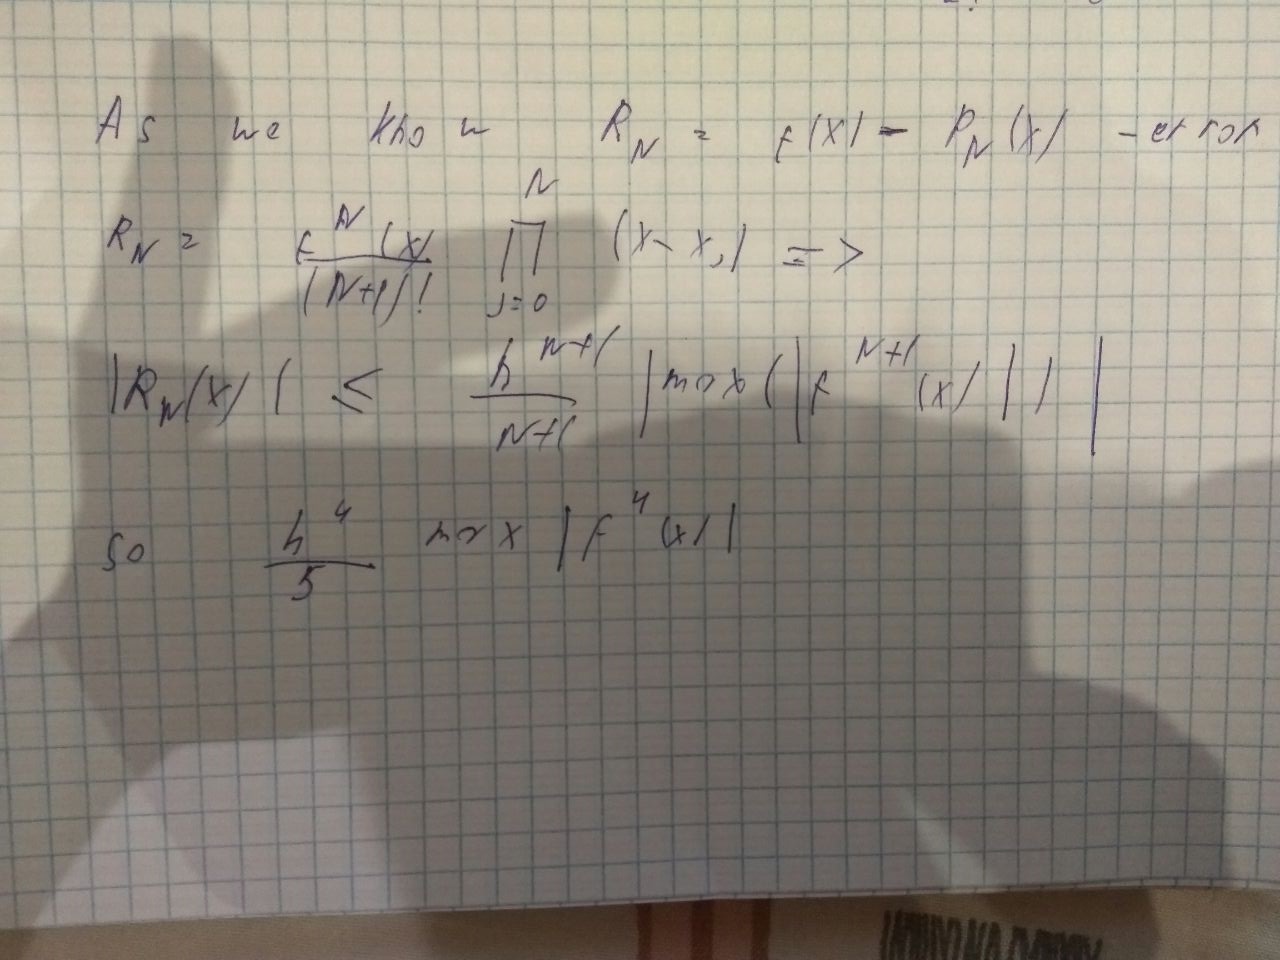 As we know R_N = f(x) - P_N(x) - error
R_N = f^N(x) / (N+1)! ∏_{j=0}^{N} (x - x_j) =>
|R_N(x)| ≤ h^{N+1} / N+1 |max(|f^{N+1}(x)|)|
so h^4 / 5 max |f^4(x)|